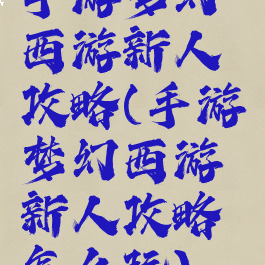 手游梦幻
西游新人
攻略(手游
梦幻西游
新人攻略
怎么玩)